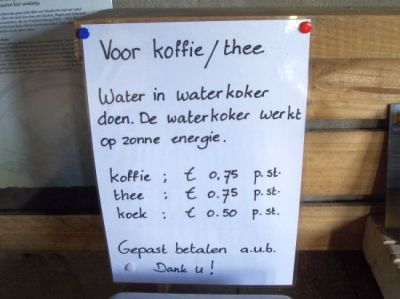 Voor koffie/thee
Water in waterkoker
doen. De waterkoker werkt
op zonne energie.
koffie ; € 0,75 p.st.
thee ; € 0.75 p.st.
koek ; € 0.50 p.st.
Gepast betalen a.u.b.
Dank u!